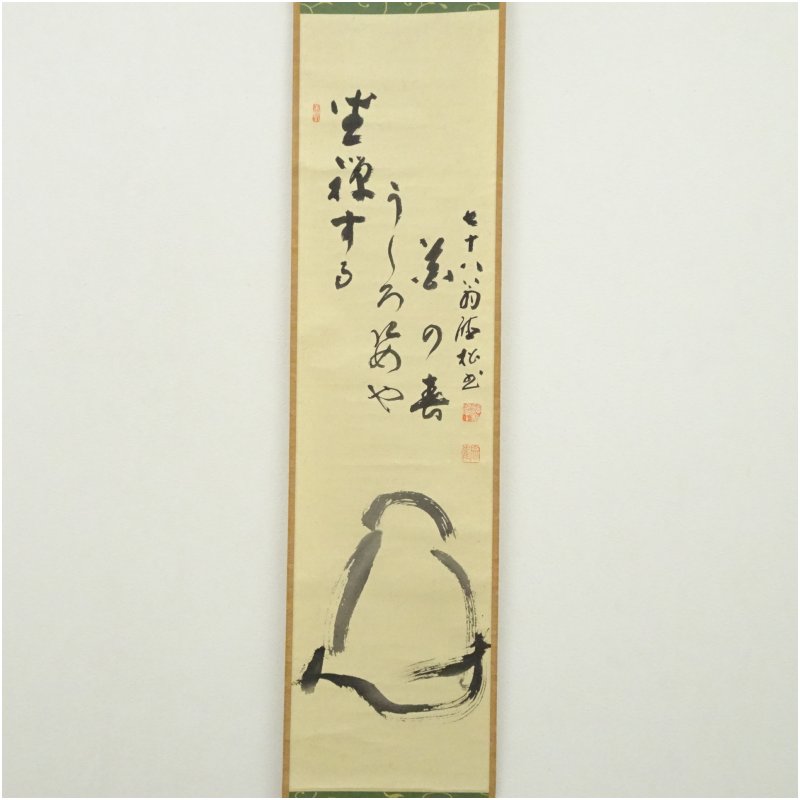 坐禪する
うしろ姿や
花の春
七十八翁 書